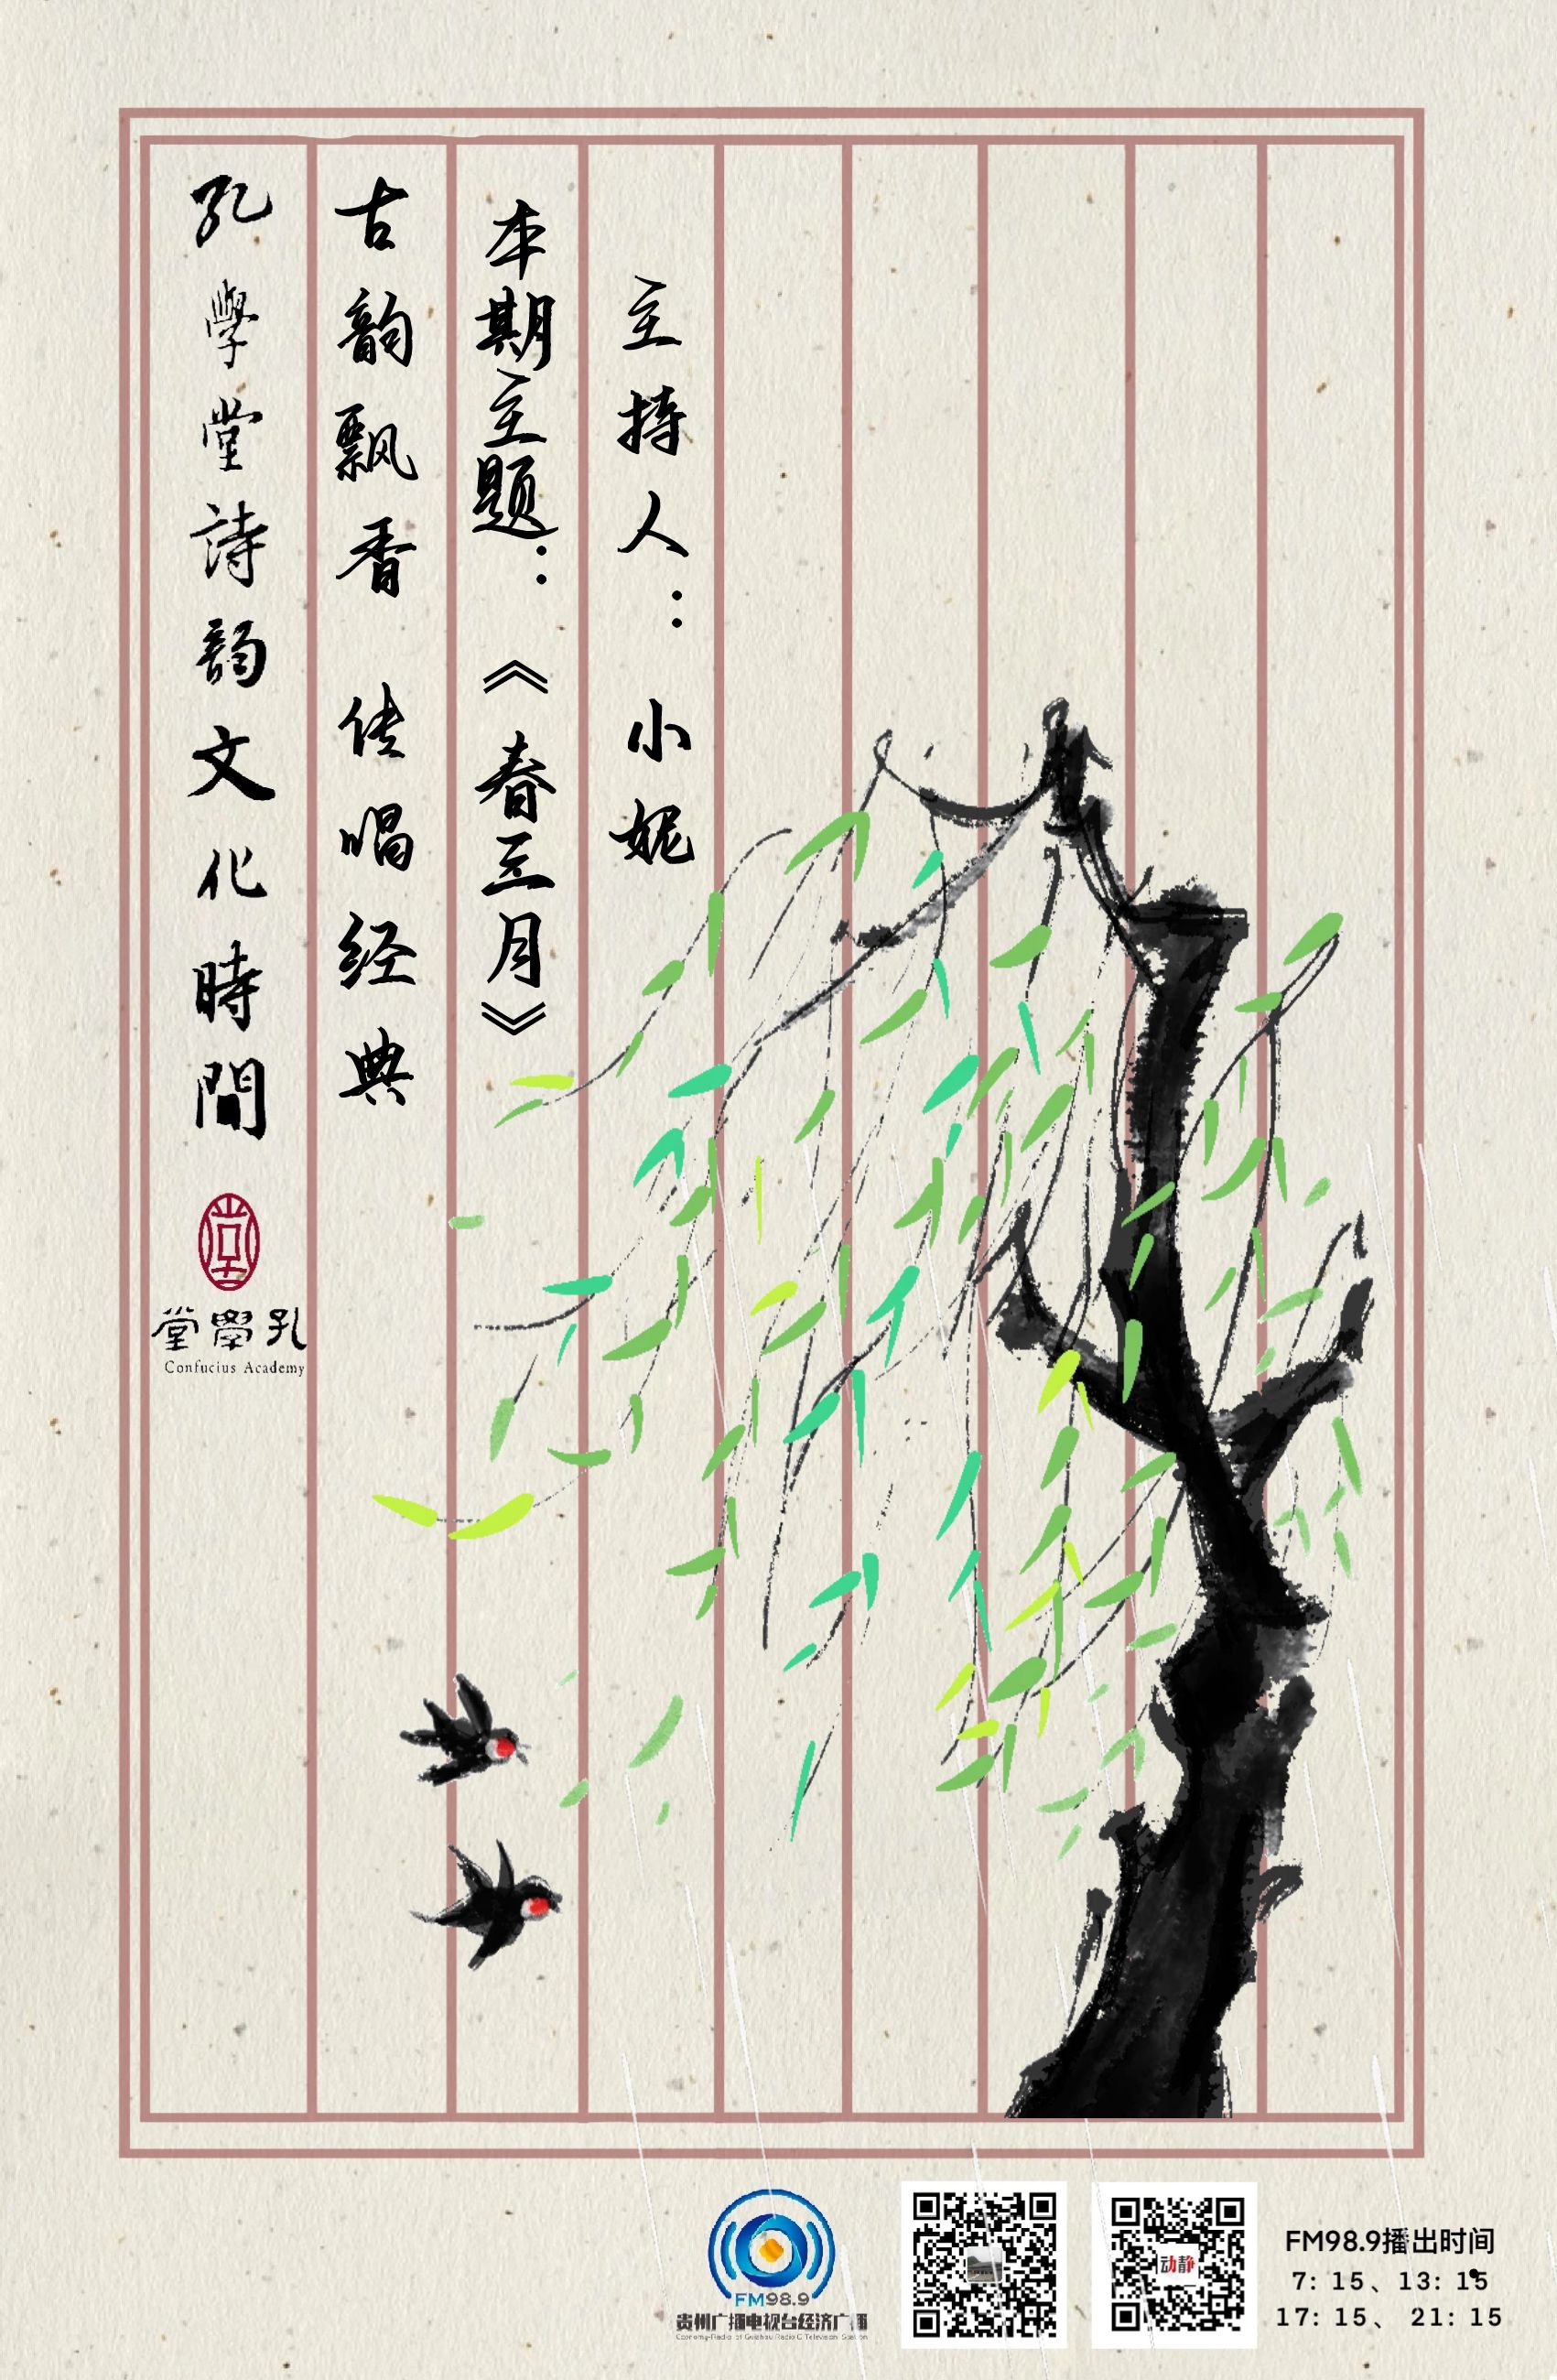 孔學堂詩韵文化時間
古韵飘香 传唱经典
本期主题：《春三月》
主持人：小妮
堂學孔
Confucius Academy
FM98.9
贵州广播电视台经济广播
Economy-Radio of Guizhou Radio & Television Station
动静
FM98.9播出时间
7: 15、13: 15
17: 15、 21: 15